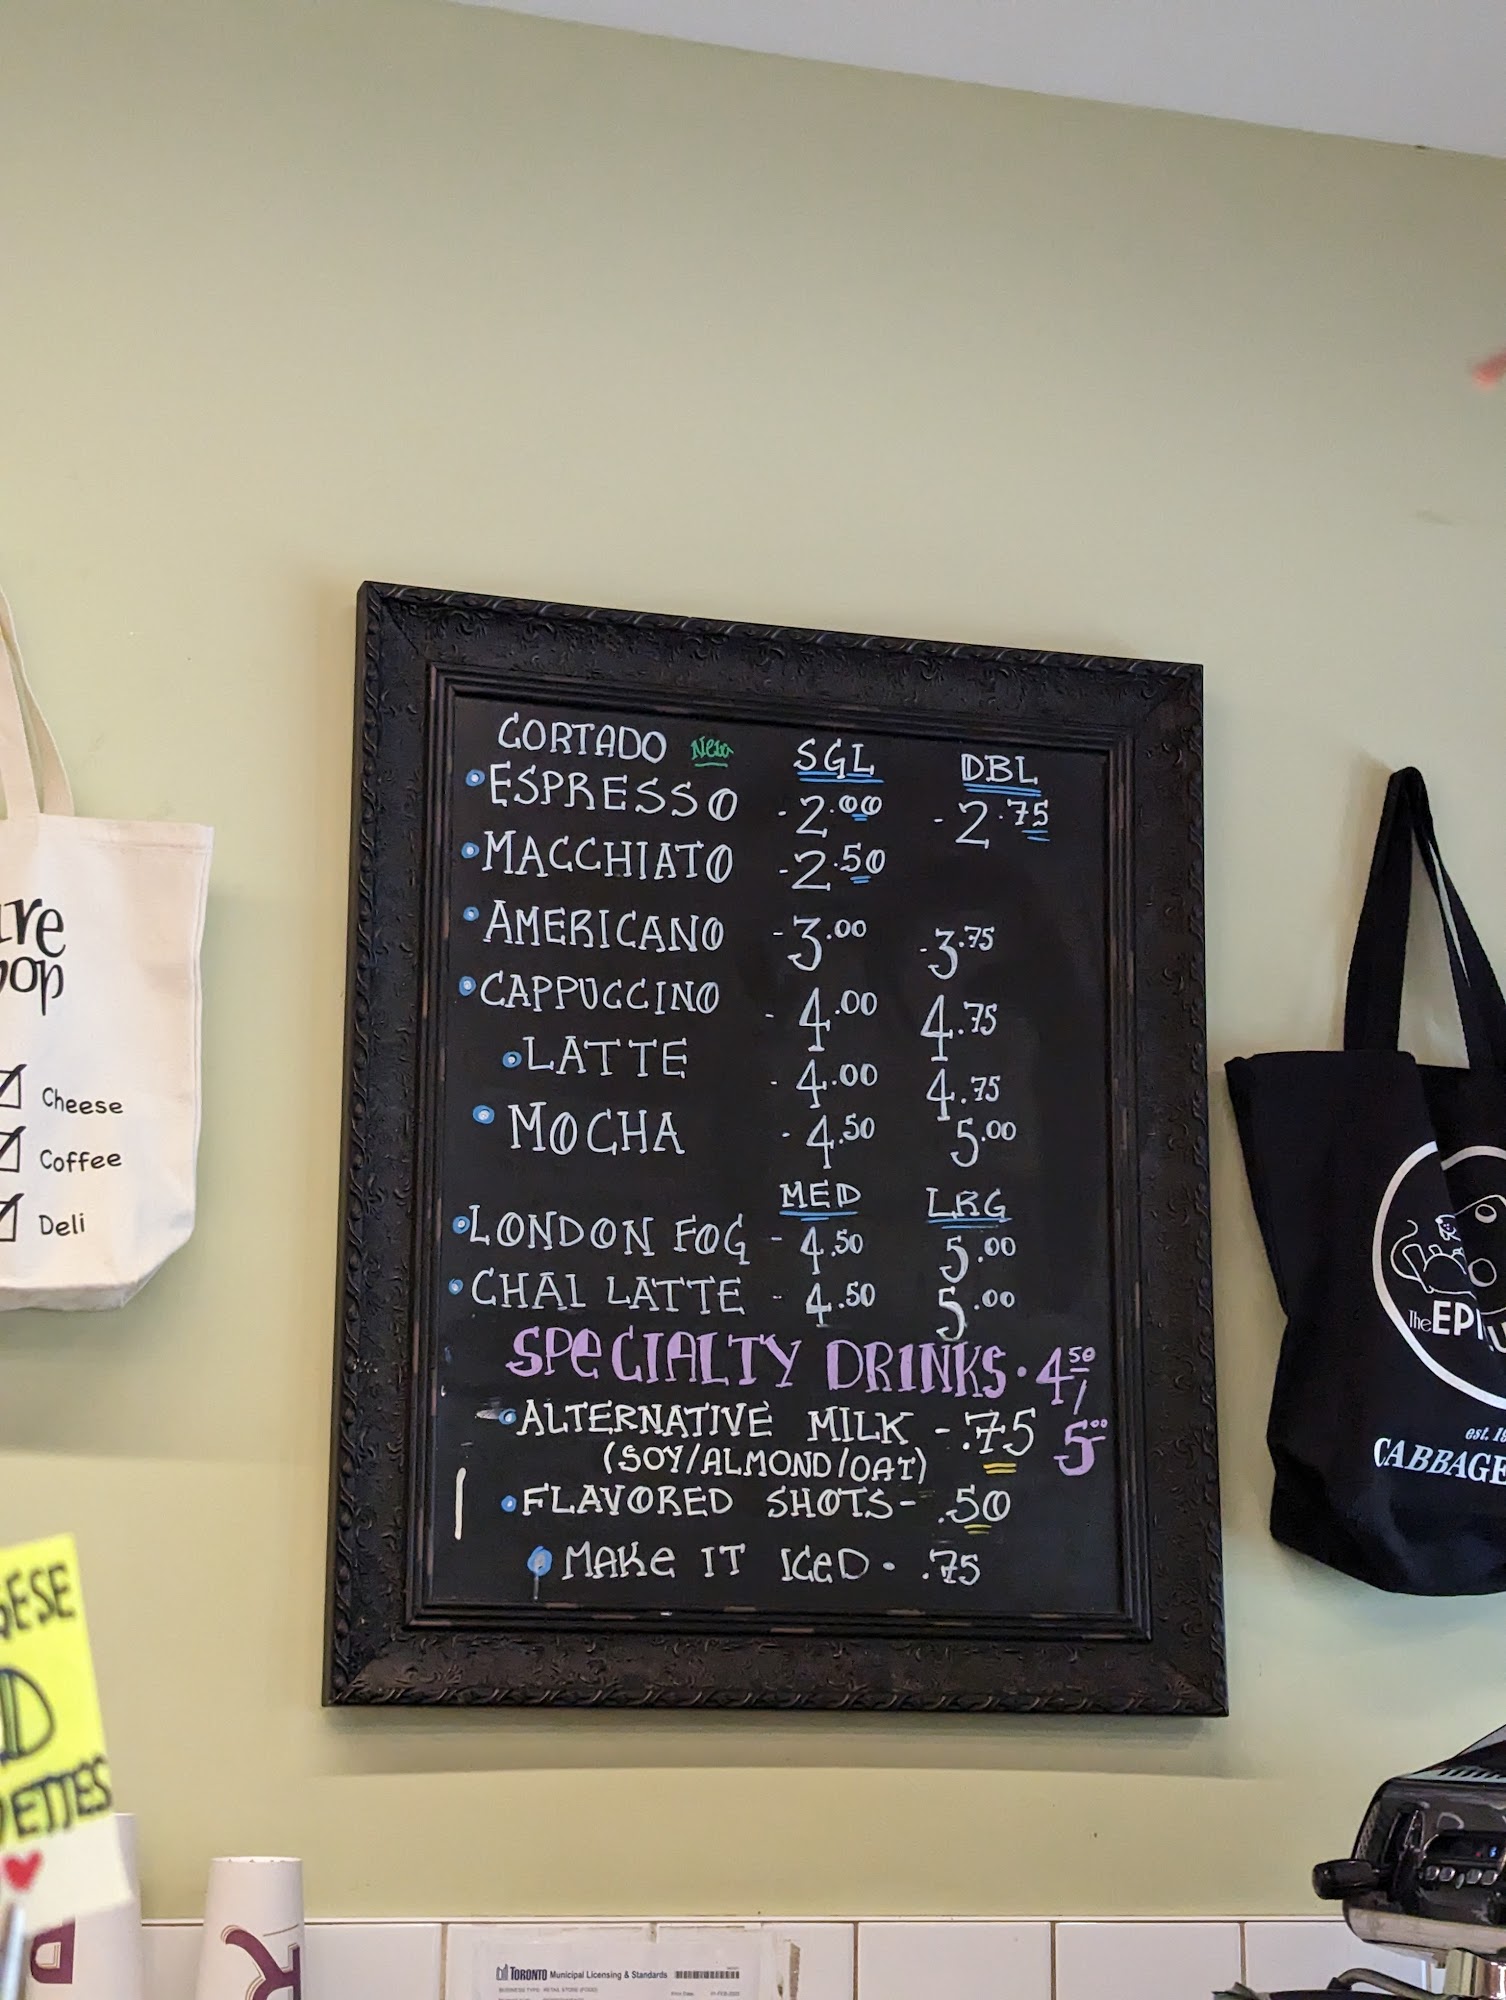 CORTADO New SGL DBL
ESPRESSO -2.00 -2.75
MACCHIATO -2.50
AMERICANO -3.00 -3.75
CAPPUCCINO - 4.00 4.75
LATTE - 4.00 4.75
MOCHA - 4.50 5.00
MED LRG
LONDON FOG - 4.50 5.00
CHAI LATTE - 4.50 5.00
SPECIALTY DRINKS · 4.50 / 5.00
ALTERNATIVE MILK - .75
(SOY/ALMOND/OAT)
FLAVORED SHOTS - .50
MAKE IT ICED · .75
Cheese
Coffee
Deli
The EPI
est. 19
CABBAGE
ETTES
TORONTO Municipal Licensing & Standards
BUSINESS TYPE: RETAIL STORE (FOOD)